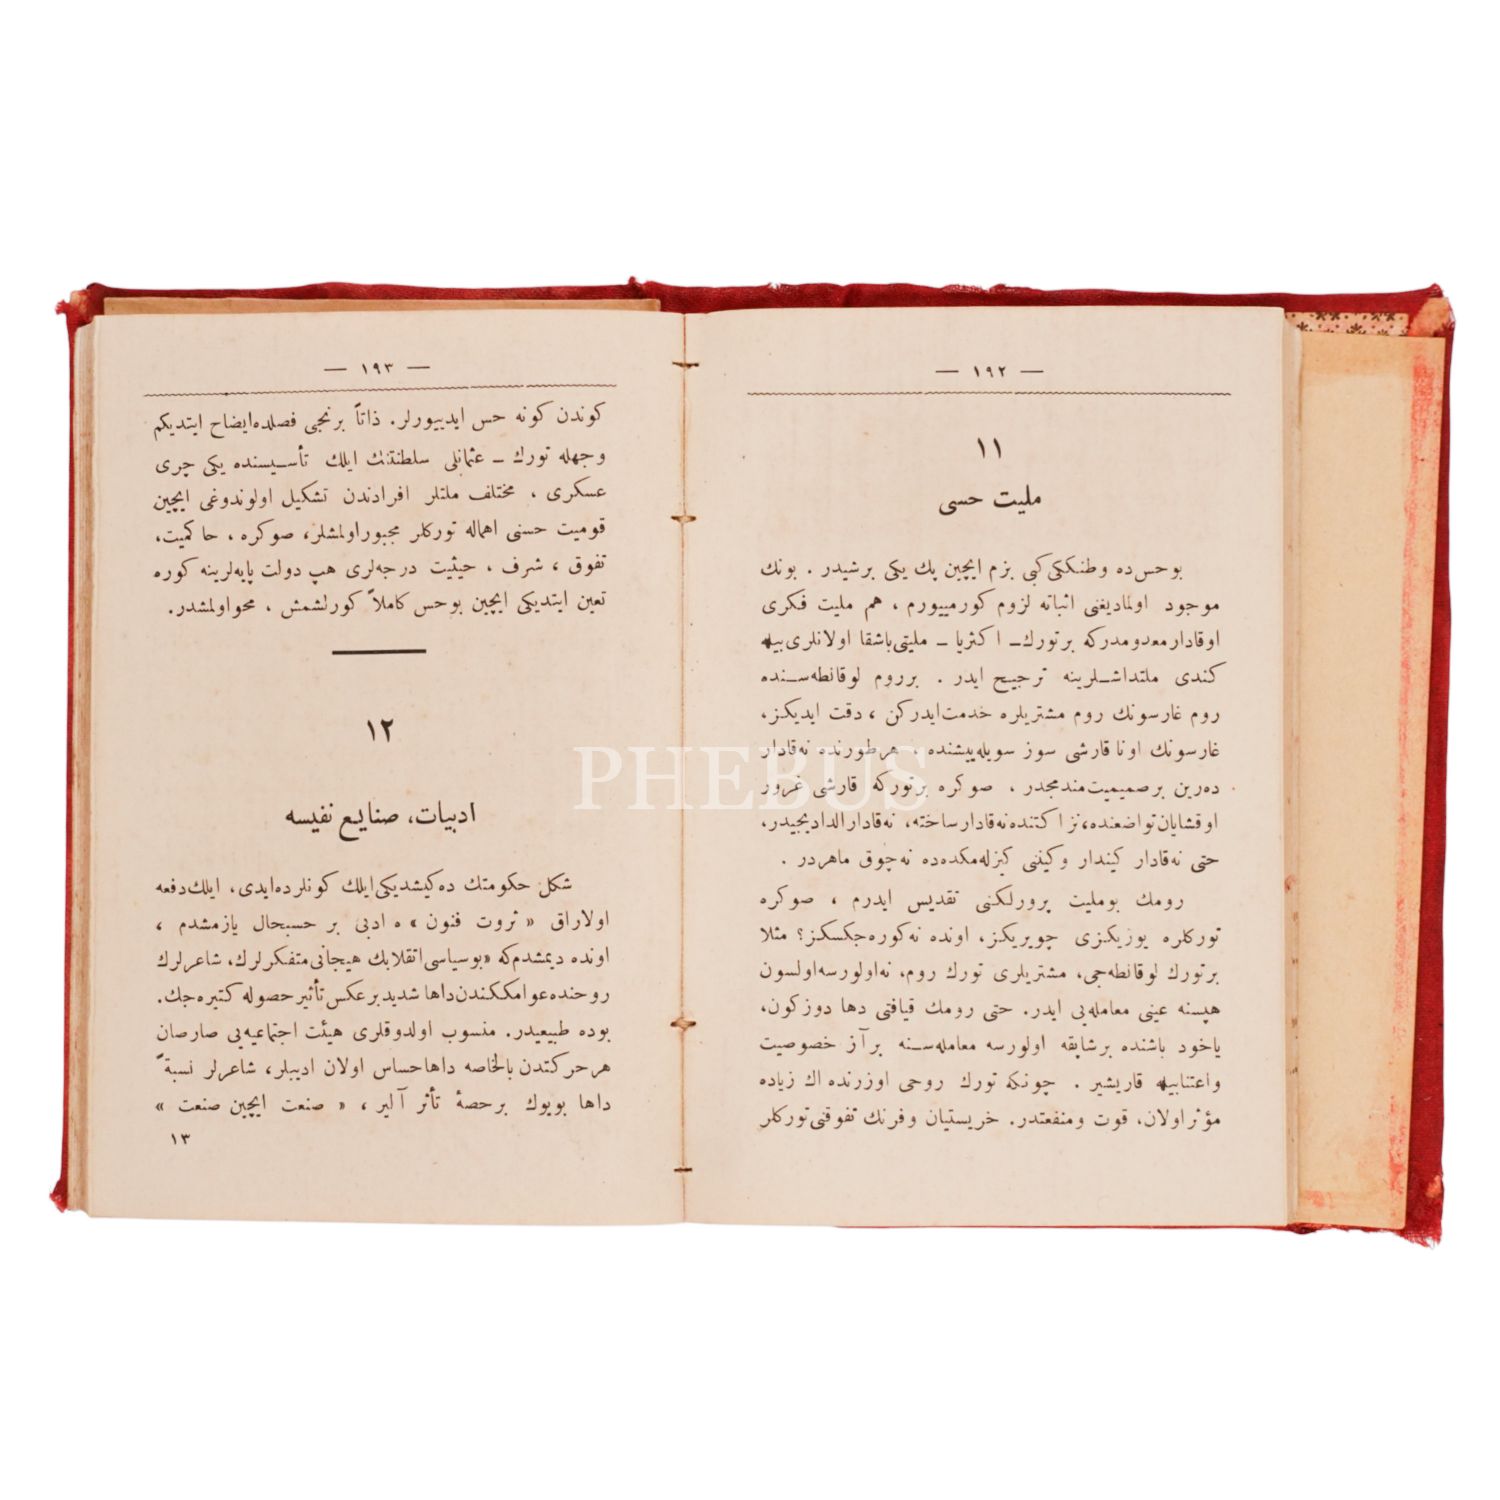 — ١٩٢ —
١١
مليت حسى
بوحس‌ده وطنككى‌كبى بزم ايچين پك يكى برشيدر . بونك
موجود اولماديغنى اثباته لزوم كورمييورم ، هم مليت فكرى
اوقادارمعدومدركه برتورك ـ اكثريا ـ مليتى‌باشقا اولانلرى‌بيله
كندى ملتداشـلرينه ترجيح ايدر . برروم لوقانطه‌سـنده
روم غارسونك روم مشتريلره خدمت‌ايدركن ، دقت ايديكز،
غارسونك اوناقارشى سوز سويله‌ييشنده ، هرطورنده نه‌قادار
ده‌رين برصميميت‌مندمجدر ، صوكره برتوركه قارشى غرور
اوقشايان‌تواضعنده،نزاكتنده‌نه‌قادارساخته، نه‌قادارالداديجيدر،
حتى نه‌قادار كيندار وكينى كيزله‌مكده‌ده نه‌چوق ماهردر .
رومك بومليت پرورلكنى تقديس ايدرم ، صوكره
توركلره يوزيكزى چويريكز، اونده نه‌كوره‌جكسكز؟ مثلا
برتورك لوقانطه‌جى، مشتريلرى تورك روم، نه‌اولورسه‌اولسون
هپسنه عينى معامله‌يى ايدر. حتى رومك قيافتى دها دوزكون،
ياخود باشنده برشاپقه اولورسه معامله‌سـنه برآز خصوصيت
واعتنابيله قاريشير . چونكه تورك روحى اوزرنده اك زياده
مؤثراولان، قوت ومنفعتدر. خريستيان وفرنك تفوقنى توركلر
— ١٩٣ —
كوندن كونه حس ايدييورلر. ذاتاً برنجى فصلده‌ايضاح ايتديكم
وجهله تورك ـ عثمانلى سلطنتنك ايلك تأسـيسنده يكى چرى
عسكرى ، مختلف ملتلر افرادندن تشكيل اولوندوغى ايچين
قوميت حسنى اهماله توركلر مجبوراولمشلر، صوكره ، حاكميت،
تفوق ، شرف ، حيثيت درجه‌لرى هپ دولت پايه‌لرينه كوره
تعين ايتديكى ايچين بوحس كاملاً كورلشمش ، محواولمشدر.
١٢
ادبيات، صنايع نفيسه
شكل حكومتك ده‌كيشديكى‌ايلك كونلرده‌ايدى، ايلك‌دفعه
اولاراق « ثروت فنون » ه ادبى بر حسبحال يازمشدم ،
اونده ديمشدم‌كه «بوسياسى‌انقلابك هيجانى‌متفكرلرك، شاعرلرك
روحنده‌عوامككندن‌داهاشديدبرعكس‌تأثيرحصوله كتيره‌جك.
بوده طبيعيدر. منسوب اولدوقلرى هيئت اجتماعيه‌يى صارصان
هرحركتدن بالخاصه داهاحساس اولان اديبلر، شاعرلر نسبةً
داها بويوك برحصۀ تأثر آلير ، « صنعت ايچين صنعت »
١٣
PHEBUS